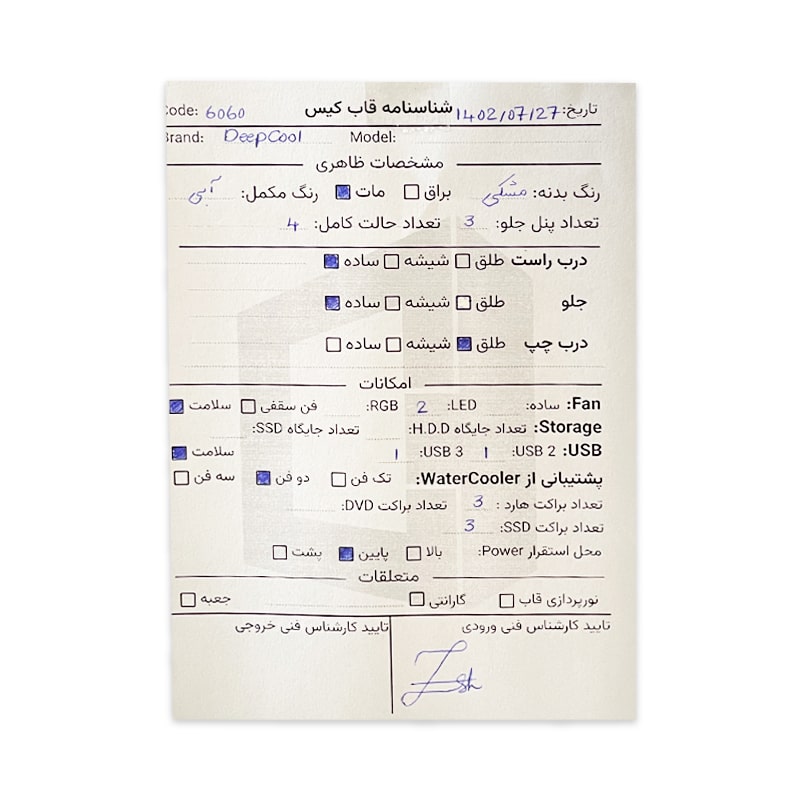 تاریخ: 1402/07/27 شناسنامه قاب کیس Code: 6060
Brand: DeepCool Model:
مشخصات ظاهری
رنگ بدنه: مشکی براق مات رنگ مکمل: آبی
تعداد پنل جلو: 3 تعداد حالت کامل: 4
درب راست طلق شیشه ساده
جلو طلق شیشه ساده
درب چپ طلق شیشه ساده
امکانات
Fan: ساده: LED: 2 RGB: فن سقفی سلامت
Storage: تعداد جایگاه H.D.D: تعداد جایگاه SSD:
USB: USB 2: 1 USB 3: 1 سلامت
پشتیبانی از WaterCooler: تک فن دو فن سه فن
تعداد براکت هارد : 3 تعداد براکت DVD:
تعداد براکت SSD: 3
محل استقرار Power: بالا پایین پشت
متعلقات
نورپردازی قاب گارانتی جعبه
تایید کارشناس فنی ورودی تایید کارشناس فنی خروجی